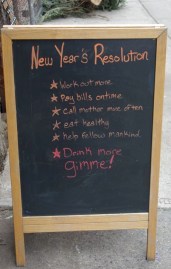 New Year's Resolution
★ Work out more
★ Pay bills on time
★ call mother more often
★ eat healthy
★ help fellow mankind
★ Drink more
gimme!